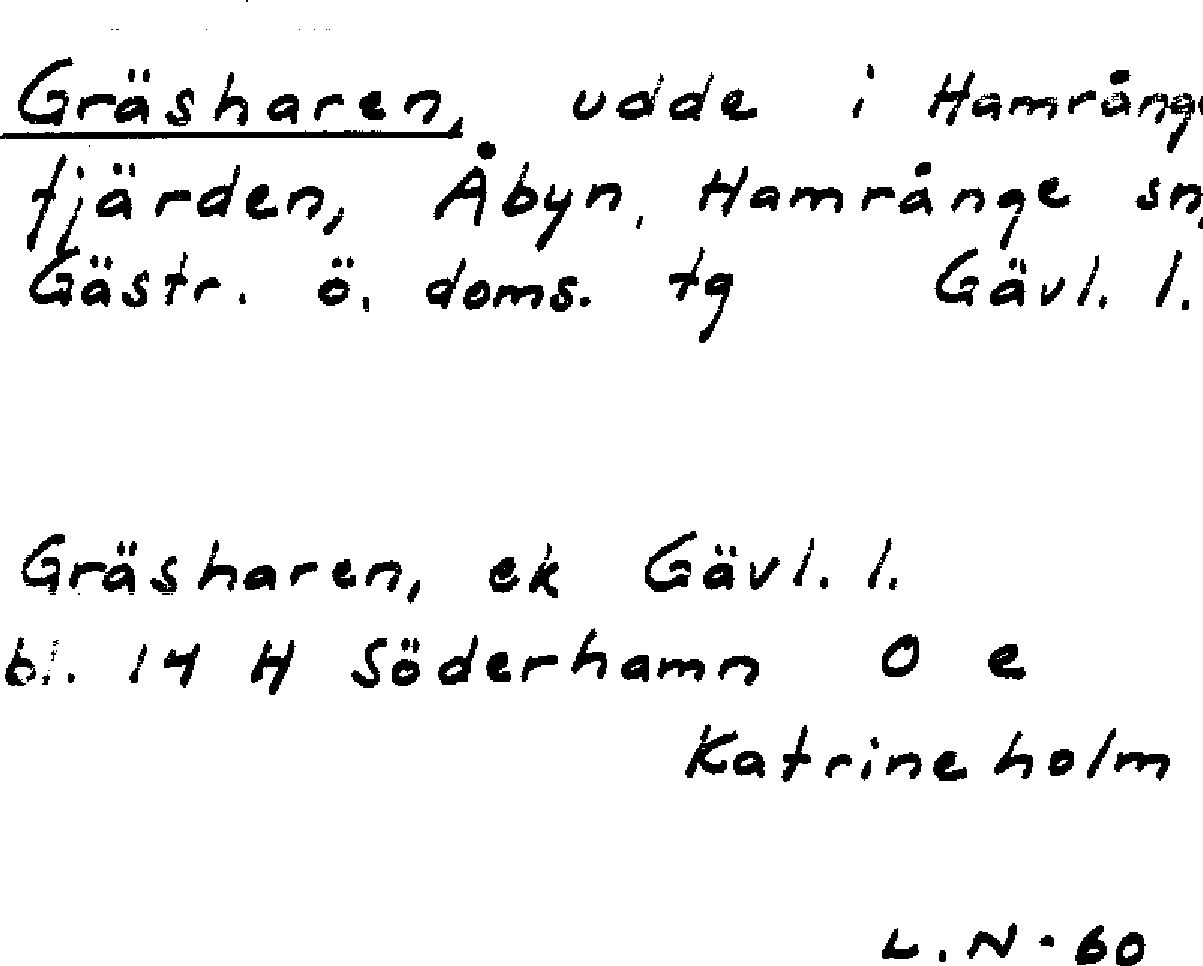 Gräsharen, udde i Hamrånge
fjärden, Åbyn, Hamrånge sn,
Gästr. ö. doms. tg Gävl. l.
Gräsharen, ek Gävl. l.
bl. 14 H Söderhamn 0 e
Katrineholm
L.N-60